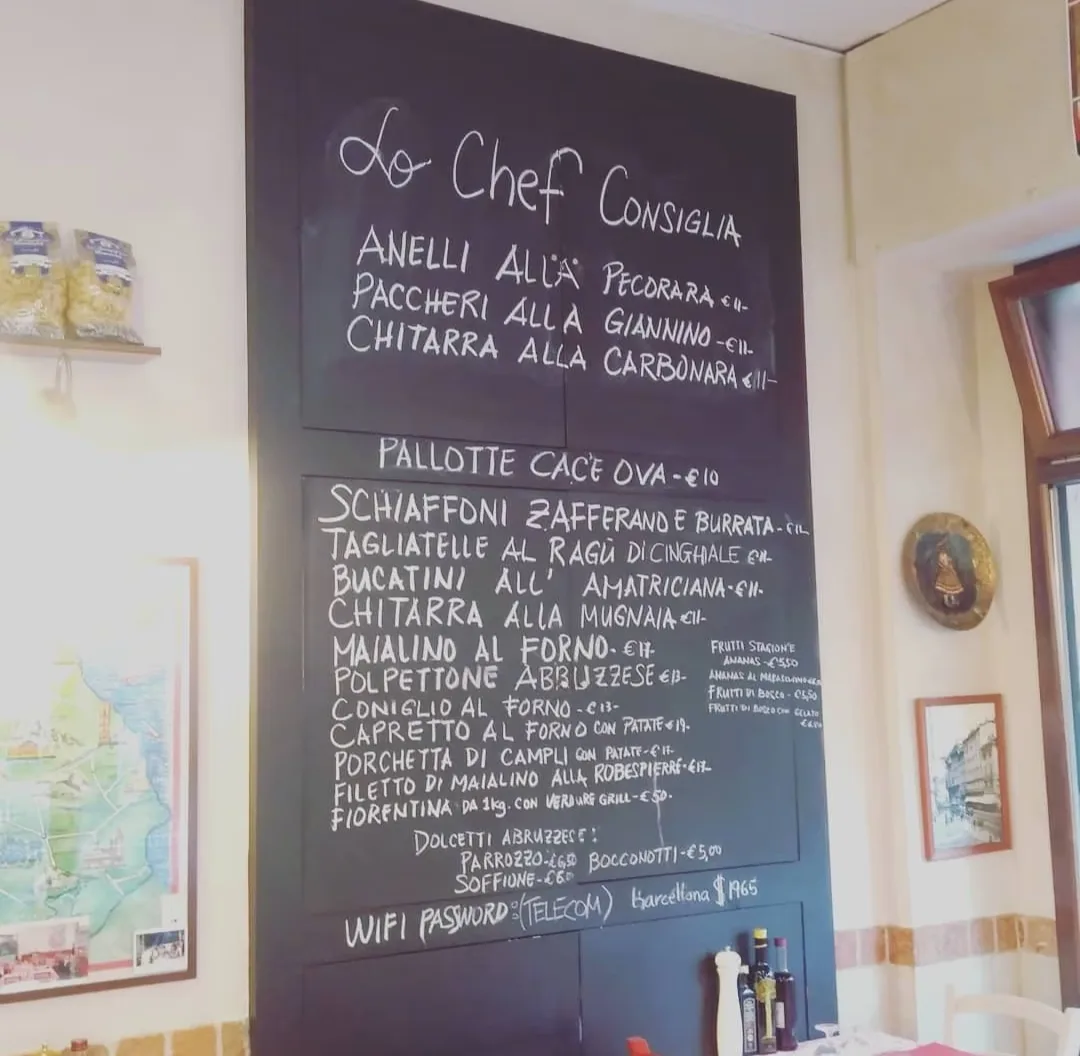 Lo Chef CONSIGLIA
ANELLI ALLA PECORARA €11-
PACCHERI ALLA GIANNINO -€11-
CHITARRA ALLA CARBONARA €11-
PALLOTTE CAC'E OVA -€10
SCHIAFFONI ZAFFERANO E BURRATA-
TAGLIATELLE AL RAGÙ DI CINGHIALE €11-
BUCATINI ALL' AMATRICIANA-€11-
CHITARRA ALLA MUGNAIA €11-
MAIALINO AL FORNO-€17-
POLPETTONE ABBRUZZESE €13-
CONIGLIO AL FORNO -€13-
CAPRETTO AL FORNO CON PATATE €19-
PORCHETTA DI CAMPLI CON PATATE-€17-
FILETTO DI MAIALINO ALLA ROBESPIERRE-€17-
FIORENTINA DA 1kg. CON VERDURE GRILL-€50-
FRUTTI STAGION'E
ANANAS -€5,50
ANANAS AL
FRUTTI DI BOSCO - €5,50
FRUTTI DI BOSCO CON GELATO
DOLCETTI ABRUZZESE:
PARROZZO- BOCCONOTTI-€5,00
SOFFIONE-
WIFI PASSWORD:(TELECOM) Barcellona $1965